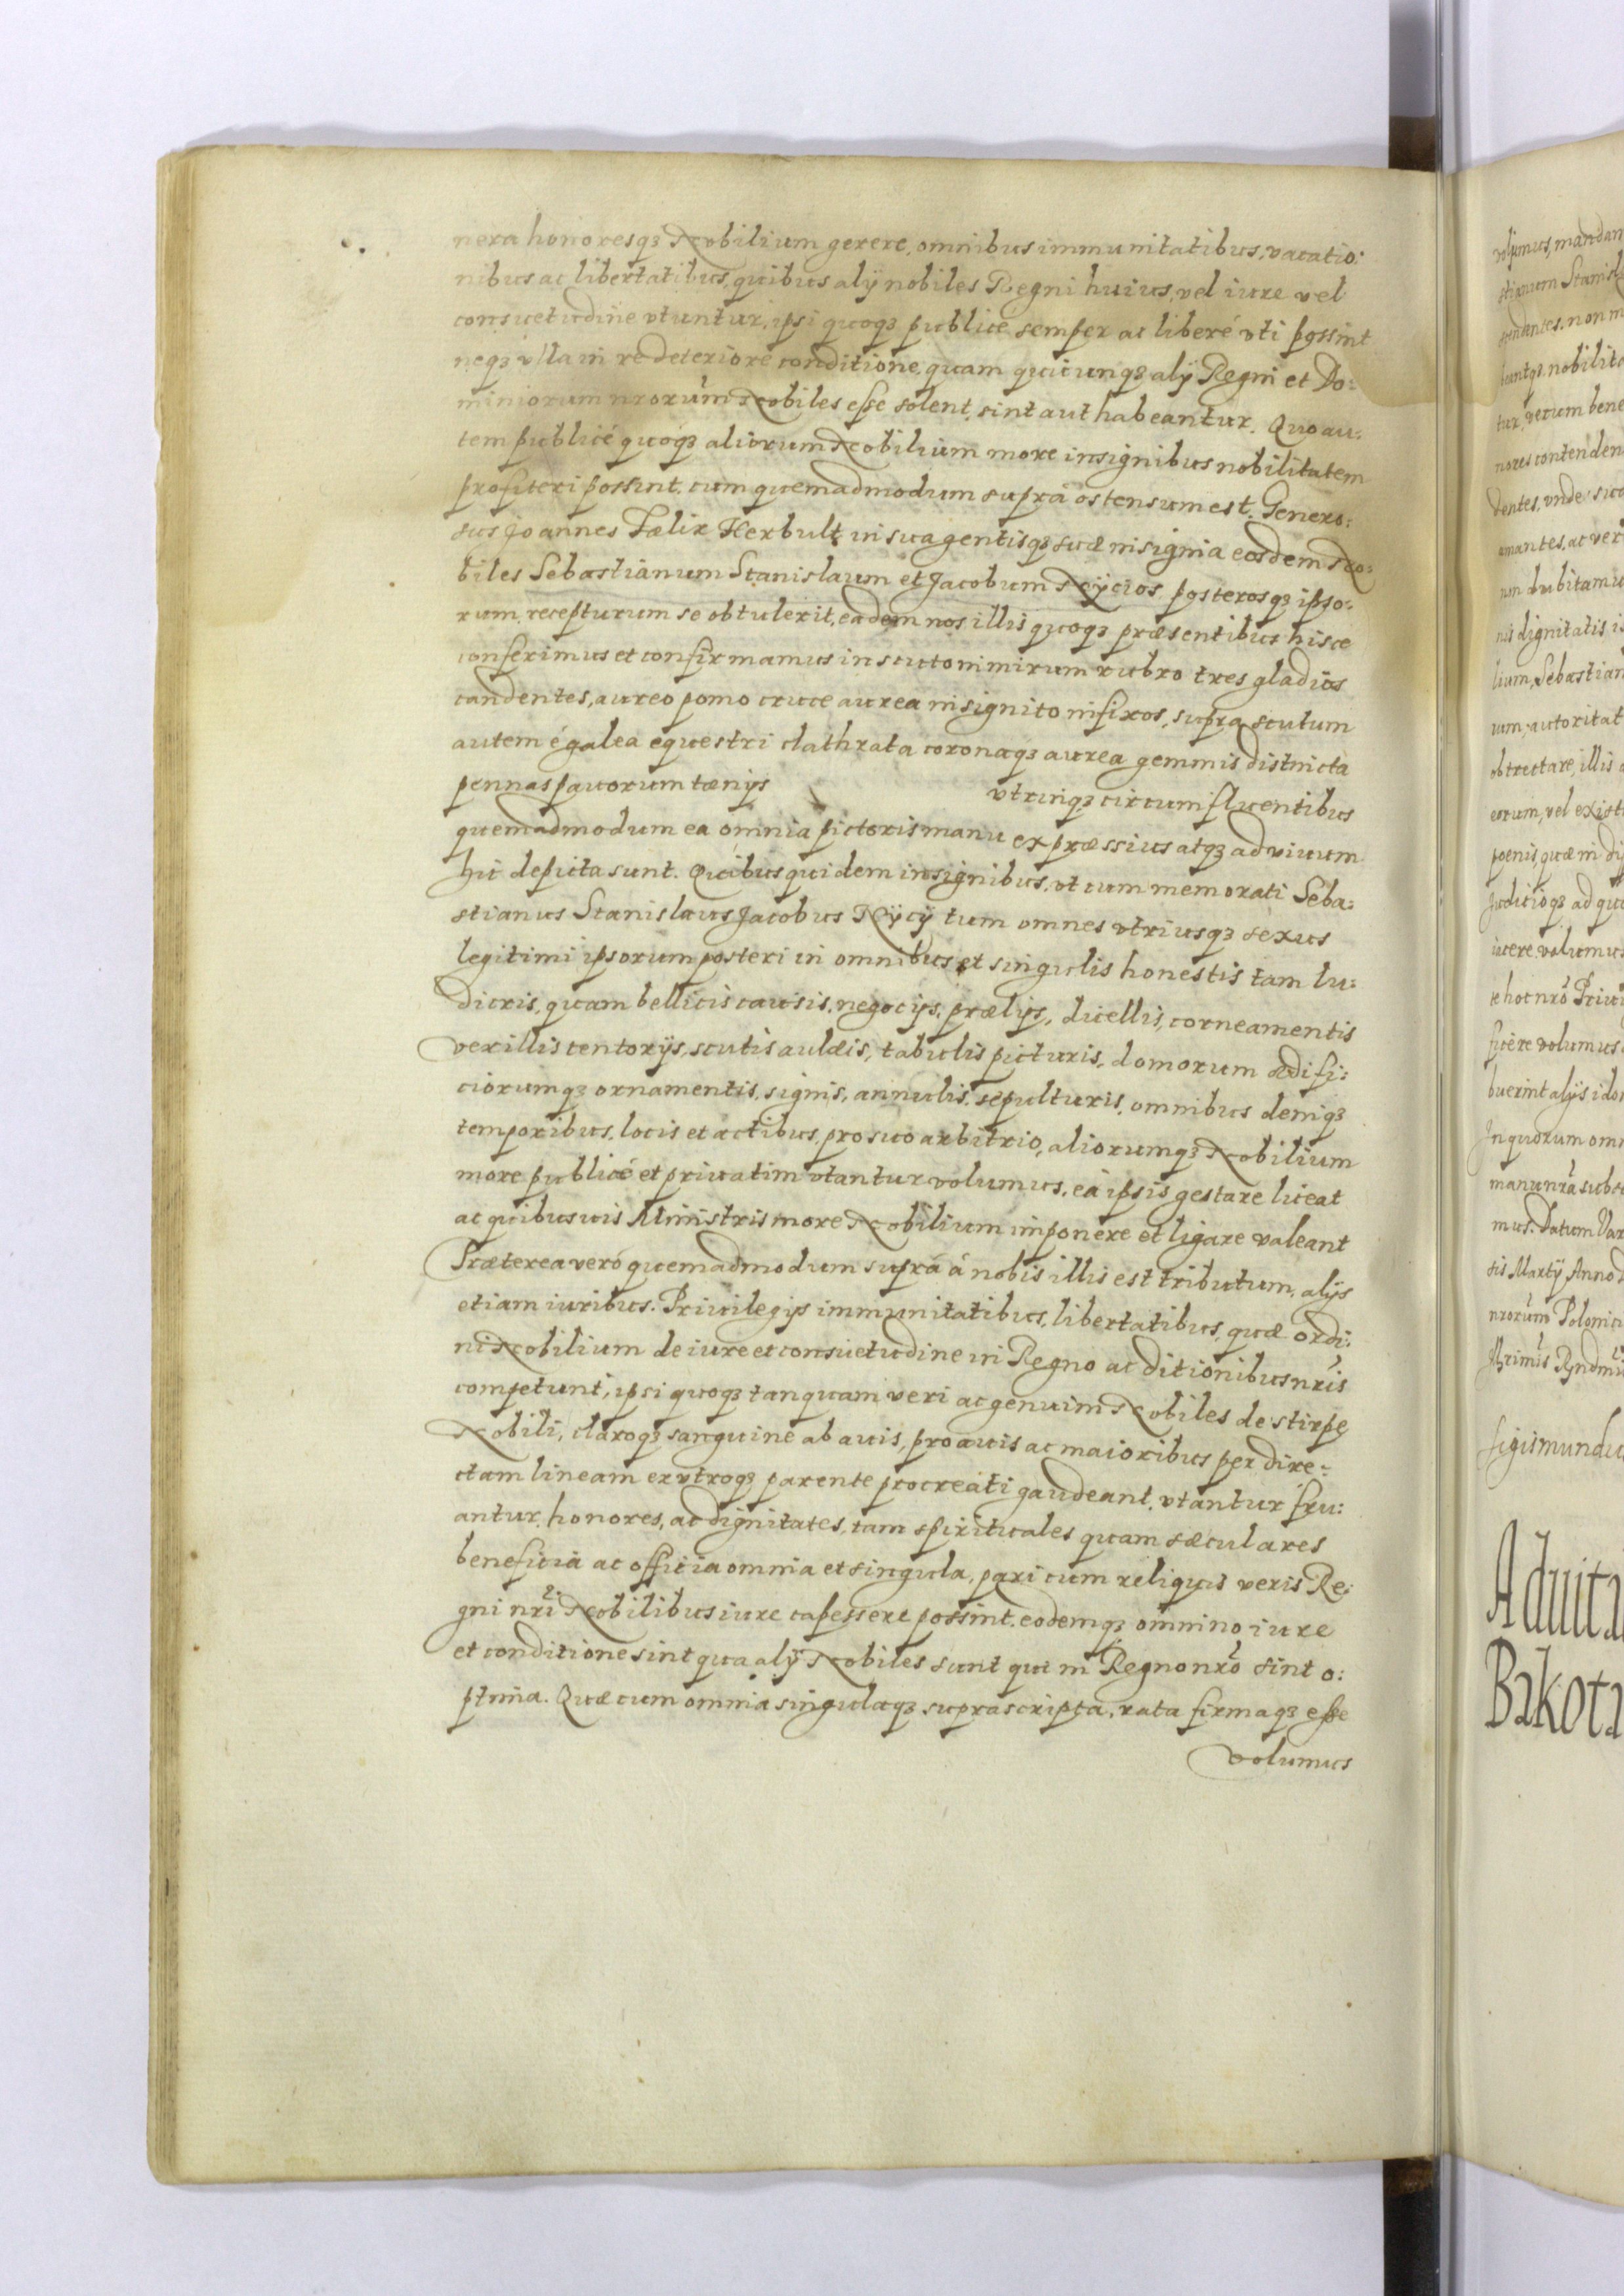 nera honoresqȝ Nobilium gerere, omnibus immunitatibus, vacatio:
nibus ac libertatibus, quibus alÿ nobiles Regni huius, vel iure vel
consuetudine vtuntur, ipsi quoqȝ publice semper ac liberé vti possint
neqȝ vlla in re deteriore conditione, quam quicunqȝ alÿ Regni et Do:
miniorum nrorum Nobiles esse solent, sint aut habeantur. Quo au:
tem publicé quoqȝ aliorum Nobilium more insignibus nobilitatem
profiteri possint, cum quemadmodum suprá ostensum est, Genero:
sus Joannes Fælix Herbult in sua gentisqȝ suæ insignia eosdem No:
biles Sebastianum Stanislaum et Jacobum Nÿcios, posterosqȝ ipso:
rum, recepturum se obtulerit, eadem nos illis quoqȝ præsentibus hisce
conferimus et confirmamus in scuto nimirum rubro tres gladios
candentes, aureo pomo cruce aurea insignito infixos, supra scutum
autem é galea equestri clathrata coronaqȝ aurea gemmis distincta
pennas pauorum tænÿs vtrinqȝ circumfluentibus
quemadmodum ea omnia pictoris manu expræssius atqȝ ad viuum
hic depicta sunt. Quibus quidem insignibus, vt cum memorati Seba:
stianus Stanislaus Jacobus Nÿcÿ tum omnes vtriusqȝ sexus
legitimi ipsorum posteri in omnibus et singulis honestis tam lu:
dicris, quam bellicis causis, negocÿs, prælÿs, duellis, corneamentis
vexillis tentorÿs, scutis aulæis, tabulis picturis, domorum ædifi:
ciorumqȝ ornamentis, signis, annulis, sepulturis, omnibus deniqȝ
temporibus, locis et actibus, pro suo arbitrio, aliorumqȝ Nobilium
more publicé et priuatim vtantur volumus, ea ipsis gestare liceat
ac quibusuis Ministris more Nobilium imponere et ligare valeant
Præterea veró quemadmodum suprá á nobis illis est tributum, alÿs
etiam iuribus. Priuilegÿs immunitatibus, libertatibus, quæ ordi:
ni Nobilium de iure et consuetudine in Regno ac ditionibus nris
competunt, ipsi quoqȝ tanquam veri ac genuini Nobiles de stirpe
Nobili, claroqȝ sanguine ab auis, proauis ac maioribus per dire:
ctam lineam ex vtroqȝ parente procreati gaudeant, vtantur fru:
antur, honores, ac dignitates, tam spirituales quam sæculares
beneficia ac officia omnia et singula, pari cum reliquis veris Re:
gni nri Nobilibus iure capessere possint, eodemqȝ omnino iure
et conditione sint qua alÿ Nobiles sunt qui in Regno nro sint o:
ptima. Quæ cum omnia singulaqȝ suprascripta, rata firmaqȝ esse
volumus
volumus, mandam
stianum Stanisl
nobilita
verum bene
nores contenden
dentes, vnde
amantes, ac ver
non dubitamu
nis dignitatis i
lium, Sebastian
um autoritat
obtrectare, illis
eorum, vel exist
poenis, quæ in di
Judicioqȝ ad qu
volumus
hoc nro Priui
ficere volumus
buerint alÿs ido
In quorum omn
manu nra subs
mus. Datum Var
sis Martÿ Anno
nrorum Poloni
Sigismundu
Aduita
Bakota